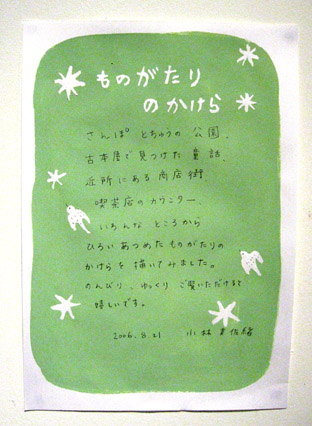 ものがたり
のかけら
さんぽ とちゅうの 公園、
古本屋で見つけた 童話、
近所にある 商店街、
喫茶店のカウンター、
いろんな ところから
ひろいあつめた ものがたりの
かけらを 描いてみました。
のんびり、ゆっくり ご覧いただけると
嬉しいです。
2006.8.21 小林